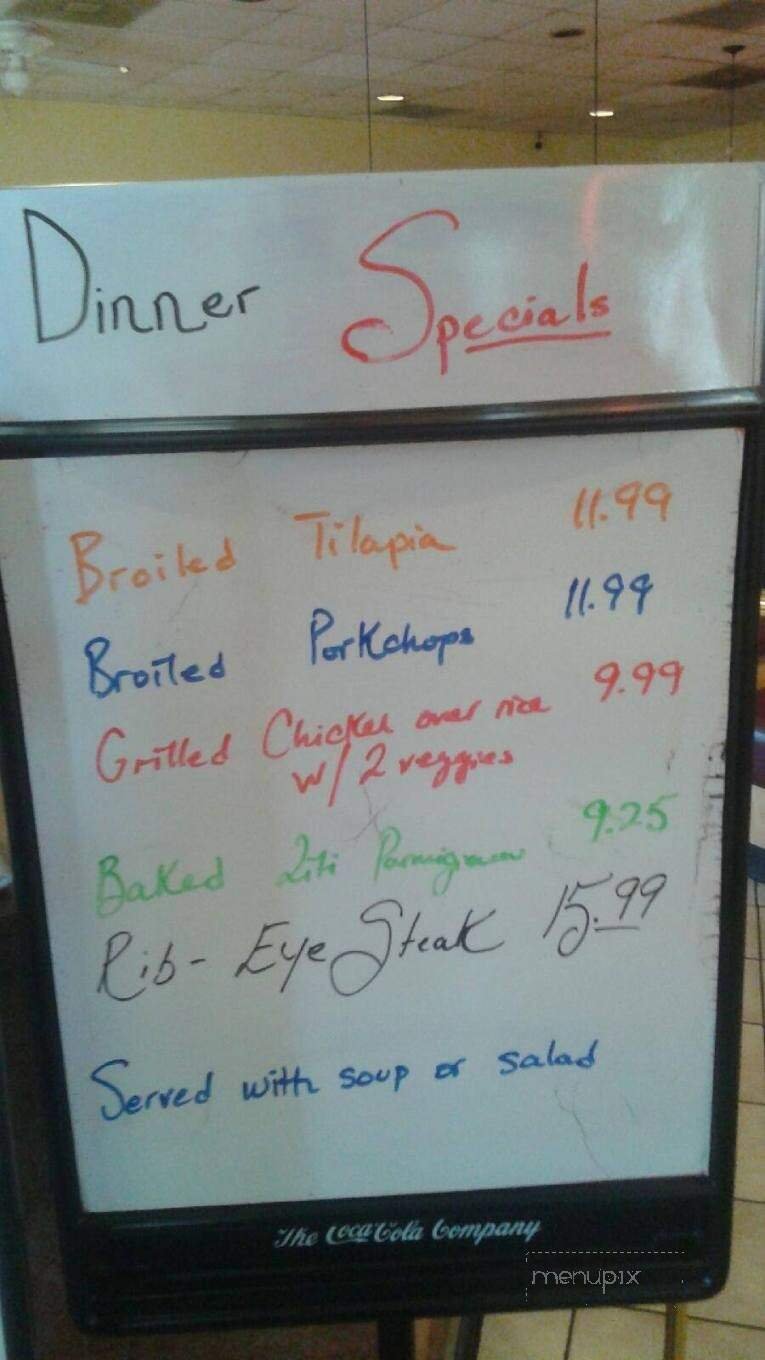 Dinner Specials
Broiled Tilapia 11.99
Broiled Porkchops 11.99
Grilled Chicken over rice 9.99
w/ 2 veggies
Baked Ziti Parmigiana 9.25
Rib-Eye Steak 15.99
Served with soup or salad
The Coca-Cola Company
menupix